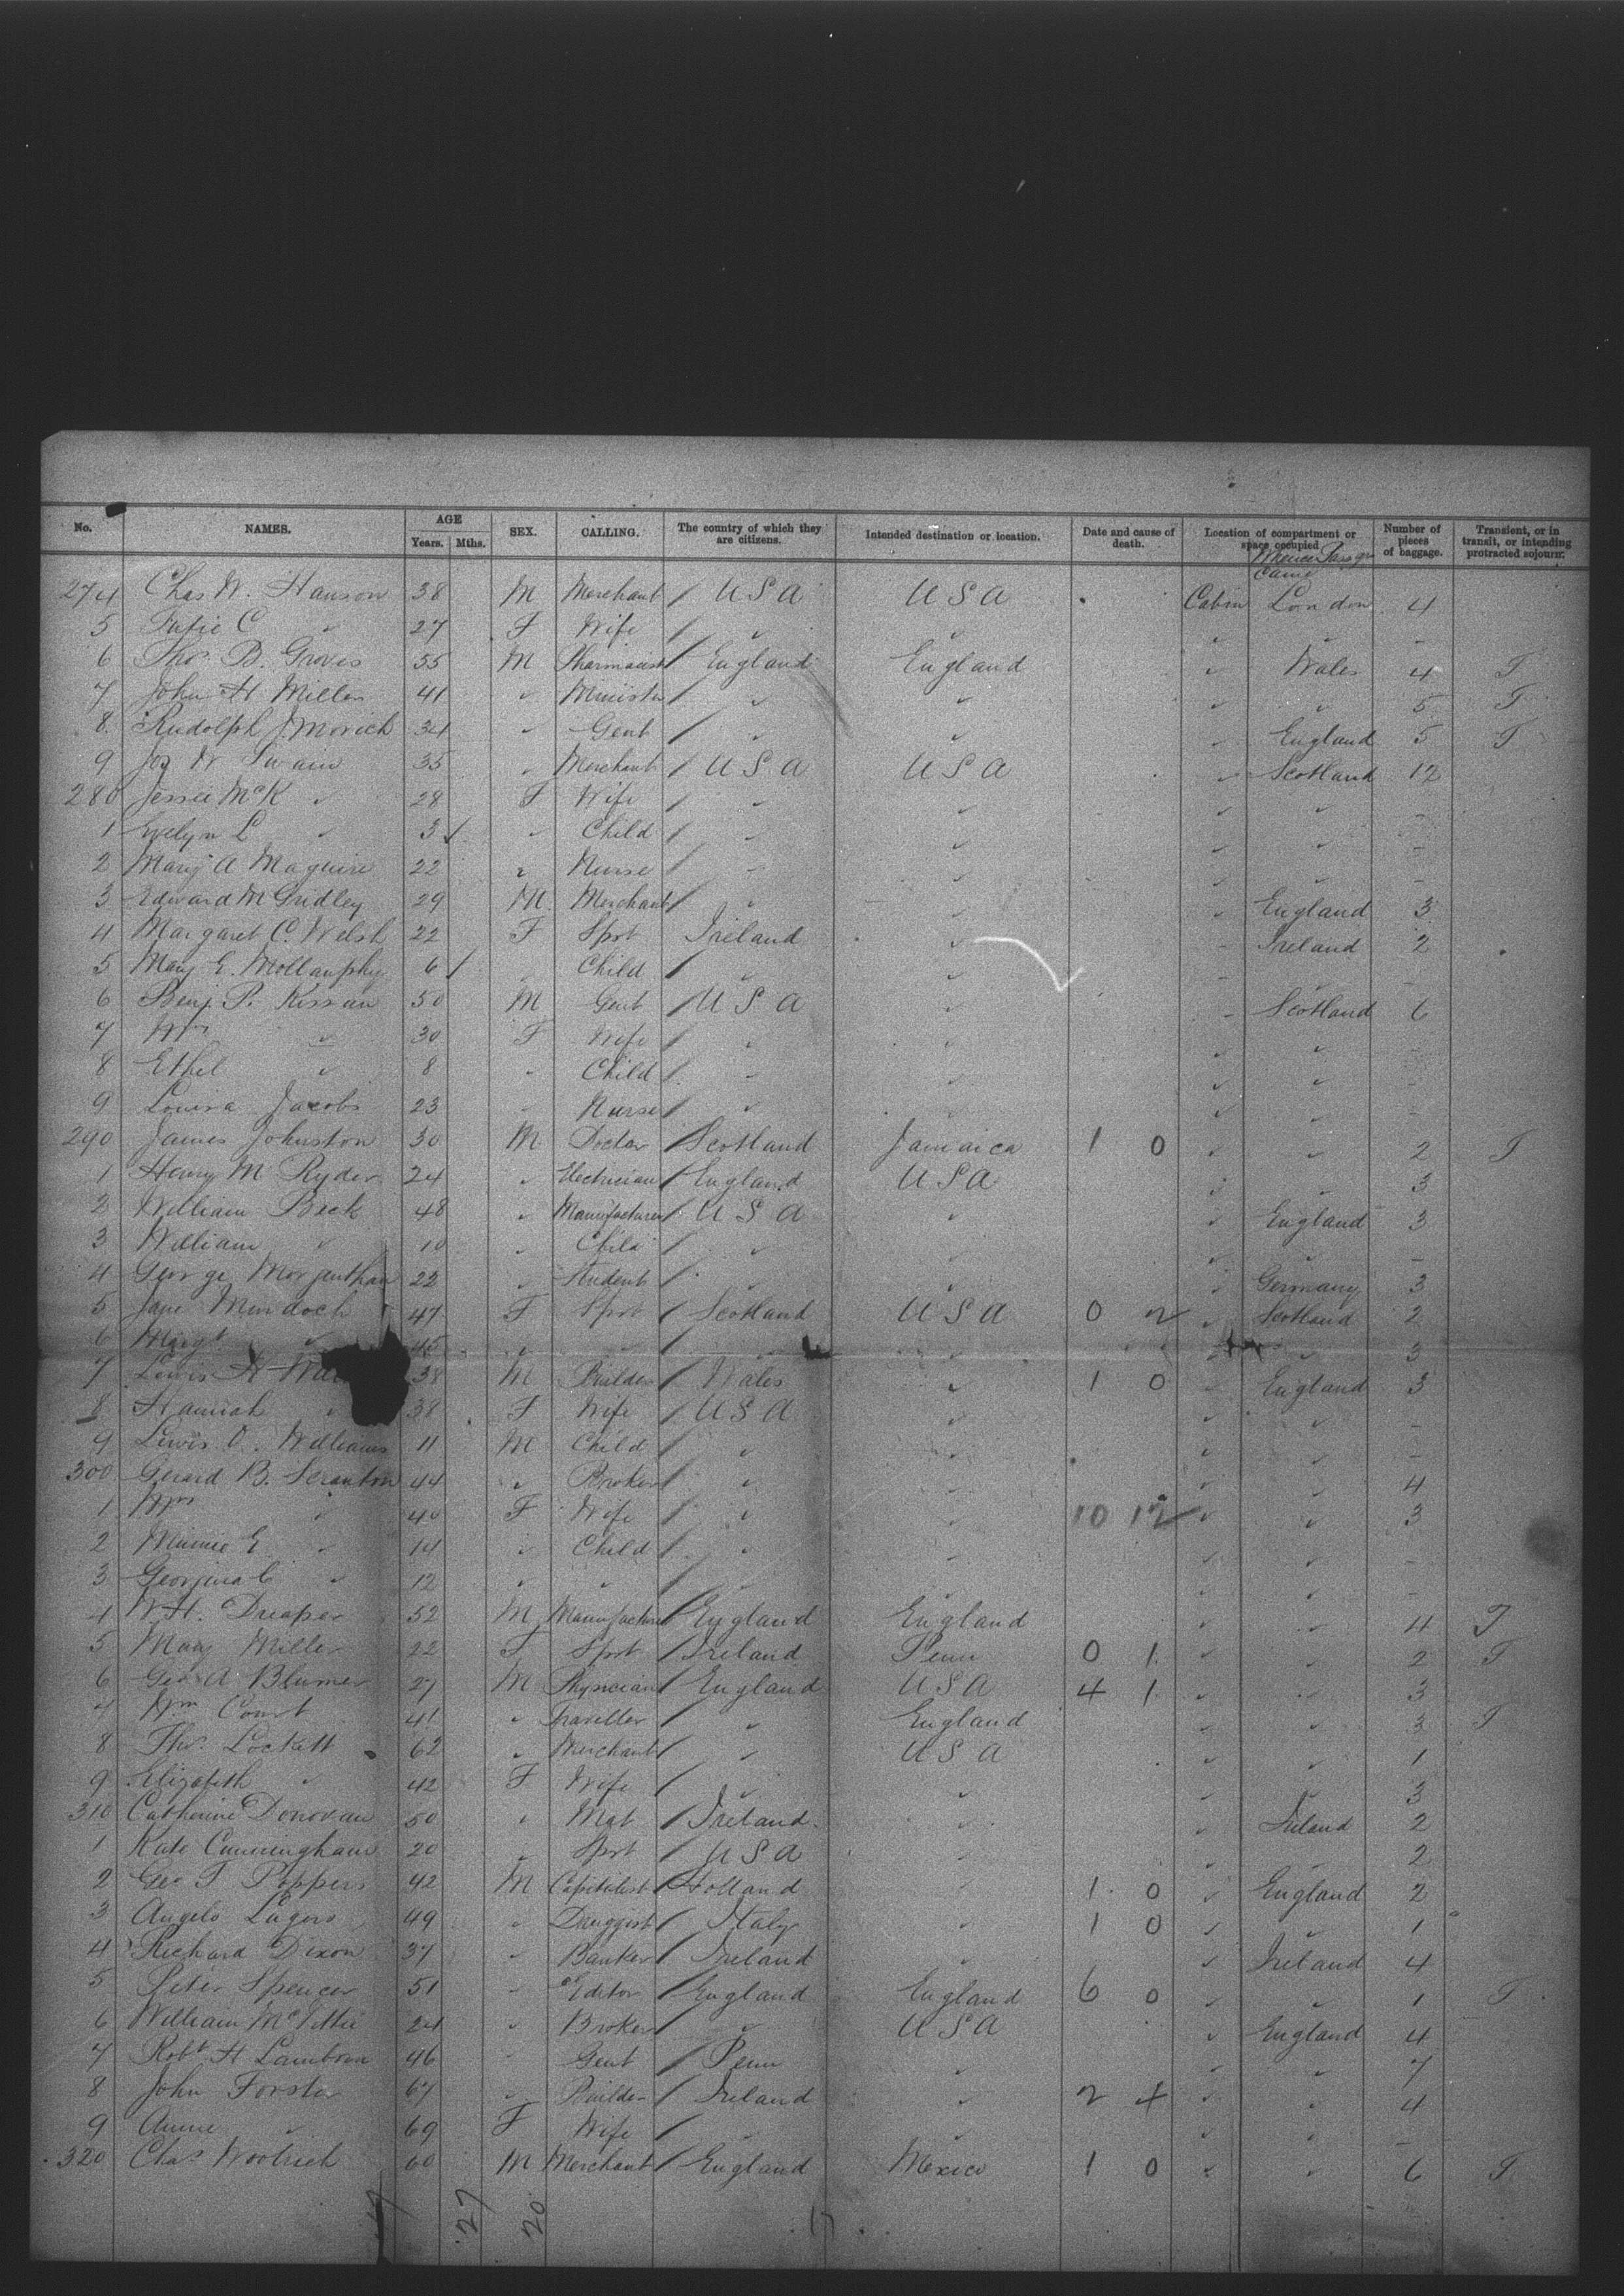 No. NAMES. AGE Years. Mths. SEX. CALLING. The country of which they are citizens. Intended destination or location. Date and cause of death. Location of compartment or space occupied Number of pieces of baggage. Transient, or in transit, or intending protracted sojourn.
Came
274 Chas W. Hanson 38 M Merchant / U S A U S A Cabin London 4
5 C " 27 F Wife / " " " " -
6 Thos. B. Groves 55 M Pharmacist / England England " Wales 4 T
7 John H Miller 41 " Minister / " " " " 5 T
8 Rudolph J. Morich 34 " Gent / " " " England 5 T
9 Jos W Swain 35 " Merchant / U S A U S A " Scotland 12
280 Jessie McK " 28 F Wife / " " " " -
1 Evelyn L " 3 / " Child / " " " " -
2 Mary A Maguire 22 " Nurse / " " " " -
3 Edward M Gridley 29 M. Merchant / " " " England 3
4 Margaret C. Welsh 22 F Spst Ireland " " Ireland 2
5 Mary E. Mollanphy 6 / " Child / " " " -
6 Benj. P. Kissam 50 M Gent / U S A " " Scotland 6
7 Mrs " 30 F Wife / " " " " -
8 Ethel " 8 " Child / " " " " -
9 Louisa Jacobs 23 " Nurse / " " " " -
290 James Johnston 30 M Doctor / Scotland Jamaica 1 0 " " 2 T
1 Henry M Ryder 24 " Electrician / England U S A " " 3
2 William Beck 48 " Manufacturer / U S A " " England 3
3 William " 10 " Child / " " " " -
4 George Morgenthau 22 " Student / " " " Germany 3
5 Jane Murdoch 47 F Spst / Scotland U S A 0 2 " Scotland 2
6 Margt " 45 " " / " " " " 3
7 Lewis 38 M Builder / Wales " 1 0 " England 3
8 Hannah " 38 F Wife / U S A " " " -
9 Lewis O. Williams 11 M Child / " " " " -
300 Gerard B. Scranton 44 " Broker / " " " " 4
1 Mrs " 40 F Wife / " " 10 12 " " 3
2 Minnie E " 14 " Child / " " " " -
3 Georgina C " 12 " " / " " " -
4 W.H. Draper 52 M Manufacturer / England England " " 4 T
5 Mary Miller 22 F Spst / Ireland Penn 0 1 " " 2 T
6 Geo A Blumer 27 M Physician / England U S A 4 1 " " 3
7 Wm Court 41 " Traveller / " England " " 3 T
8 Tho. Lockett 62 " Merchant / " U S A " " 1
9 Elizabeth " 42 F Wife / " " " " 3
310 Catherine Donovan 50 " Mat / Ireland " " Ireland 2
1 Kate Cunningham 20 " Spst / U S A " " " 2
2 Geo T Poppers 42 M Capitalist / Holland " 1 0 " England 2
3 Angelo 49 " Druggist / Italy " 1 0 " " 1
4 Richard Dixon 37 " Banker / Ireland " " Ireland 4
5 Peter Spencer 51 " Editor / England England 6 0 " " 1 T
6 William 24 " Broker / " U S A " England 4
7 Robt H Lamborn 46 " Gent / Penn " " " 7
8 John Forster 67 " Builder / Ireland " 2 4 " " 4
9 Annie " 69 F Wife / " " " " -
320 Chas Woolrich 60 M Merchant / England Mexico 1 0 " " 6 T
27 20 17